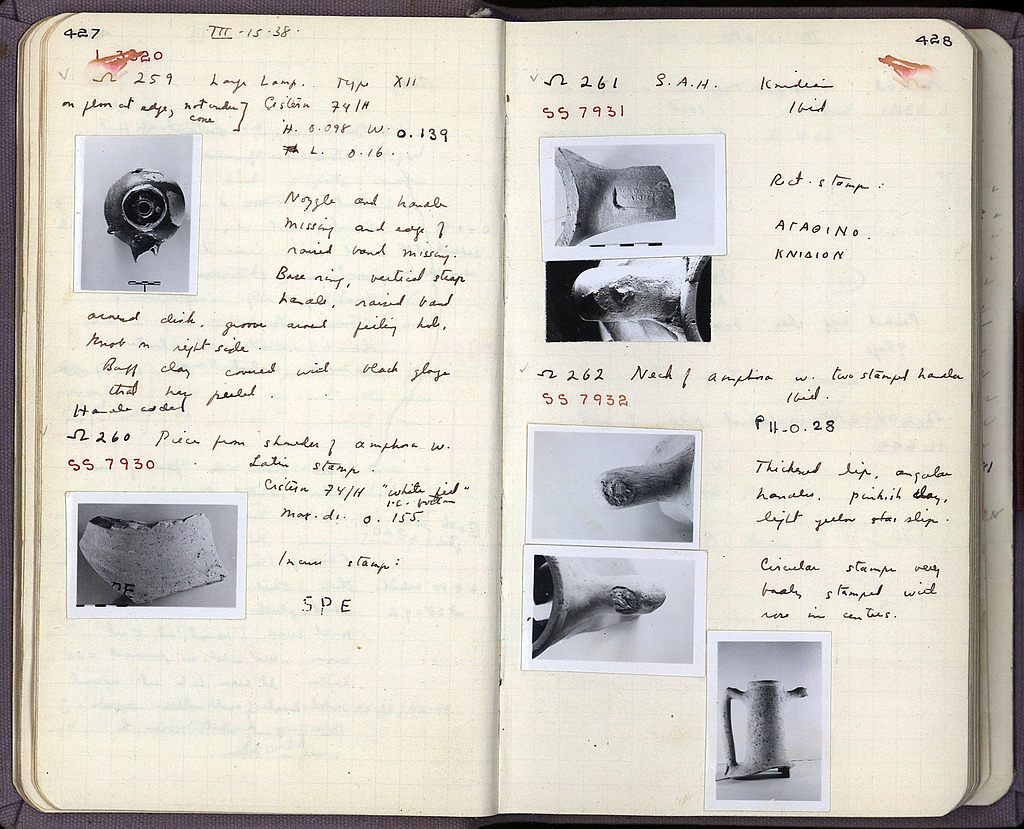 427
III - 15 - 38.
L 3820
Ω 259 Large Lamp. Type XII
on floor at edge, not under cone } Cistern 74/H
H. 0.098 W. 0.139
L. 0.16.
Nozzle and handle
missing and edge of
raised band missing.
Base ring, vertical strap
handle, raised band
around disk, groove around filling hole,
knob on right side.
Buff clay covered with black glaze
that has peeled.
Handle added
Ω 260 Piece from shoulder of amphora w.
SS 7930 Latin stamp.
Cistern 74/H "white fill"
i.e. bottom
Max. di. 0.155.
Incuse stamp:
SPE
428
Ω 261 S.A.H. Knidian
SS 7931 Ibid
Rct. stamp:
ΑΓΑΘΙΝΟ.
ΚΝΙΔΙΟΝ
Ω 262 Neck of amphora w. two stamped handles
SS 7932 Ibid.
PH-0.28
Thickened lip, angular
handles. Pinkish clay,
light yellow slip.
Circular stamps very
badly stamped with
rose in centers.